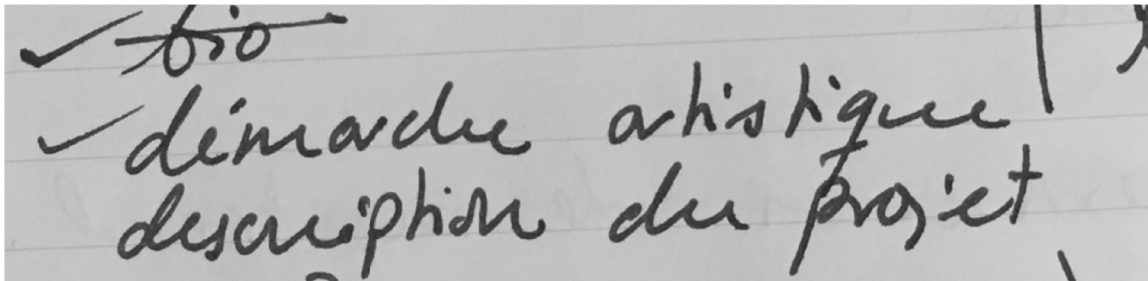 ✓ bio
✓ démarche artistique
description du projet